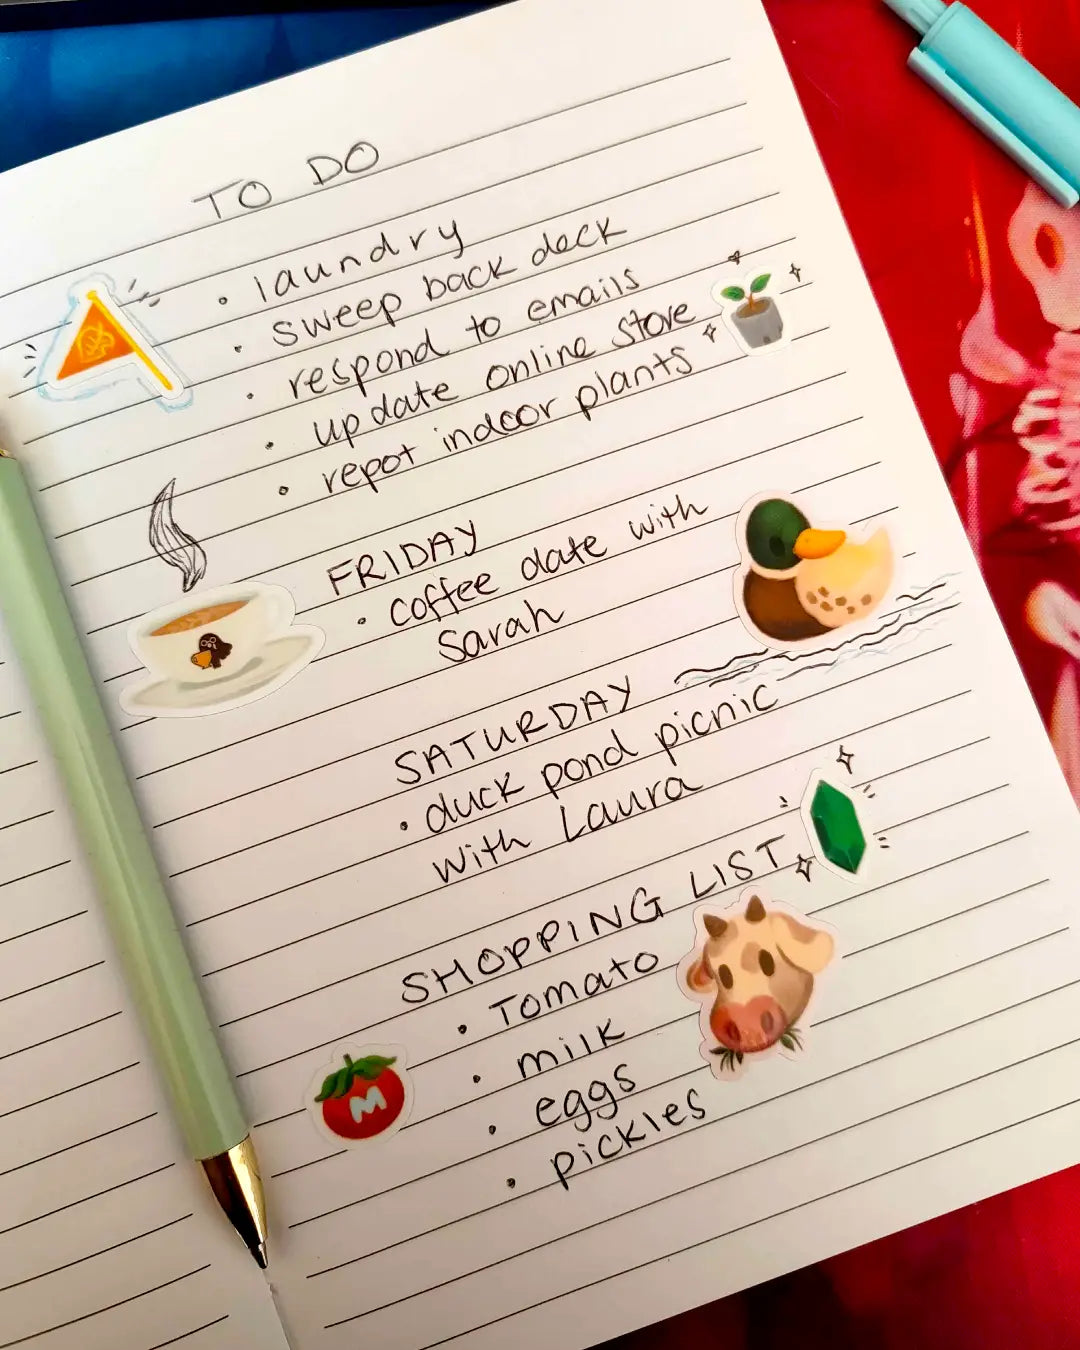 TO DO
• laundry
• sweep back deck
• respond to emails
• update online store
• repot indoor plants
FRIDAY
• coffee date with
Sarah
SATURDAY
• duck pond picnic
with Laura
SHOPPING LIST
• Tomato
• milk
• eggs
• pickles
M